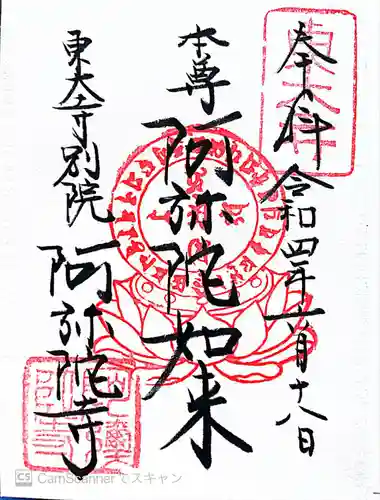 奉拝
令和四年六月十八日
本尊
阿弥陀如来
東大寺別院
阿弥陀寺
CS CamScannerでスキャン